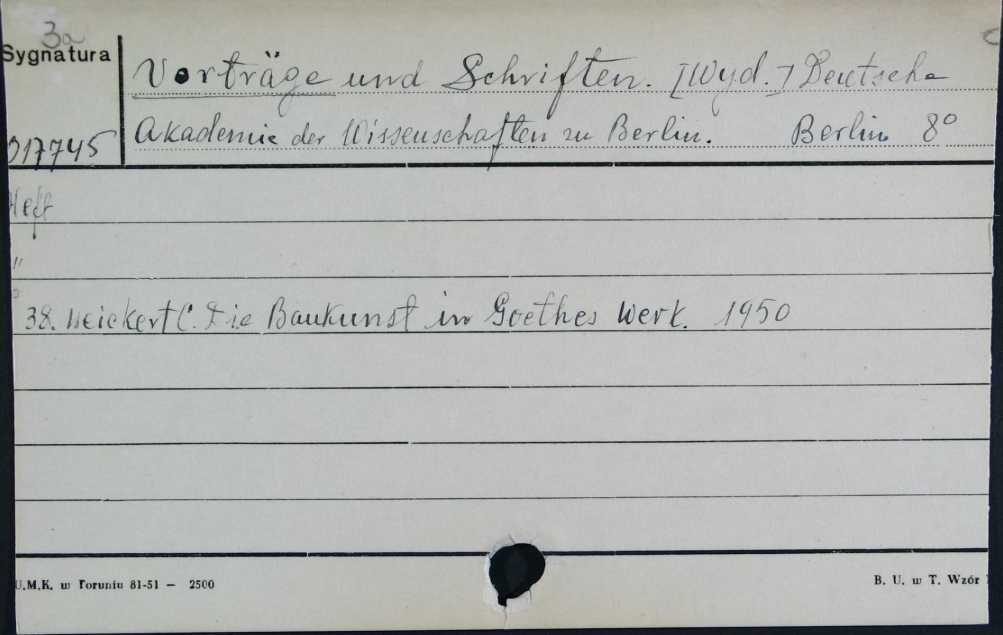 3a
Sygnatura
Vorträge und Schriften. [Wyd.] Deutsche
Akademie der Wissenschaften zu Berlin. Berlin 8°
017745
Heft
"
38. Weickert C. Die Baukunst in Goethes Werk. 1950
U.M.K. w Toruniu 81-51 — 2500
B. U. w T. Wzór